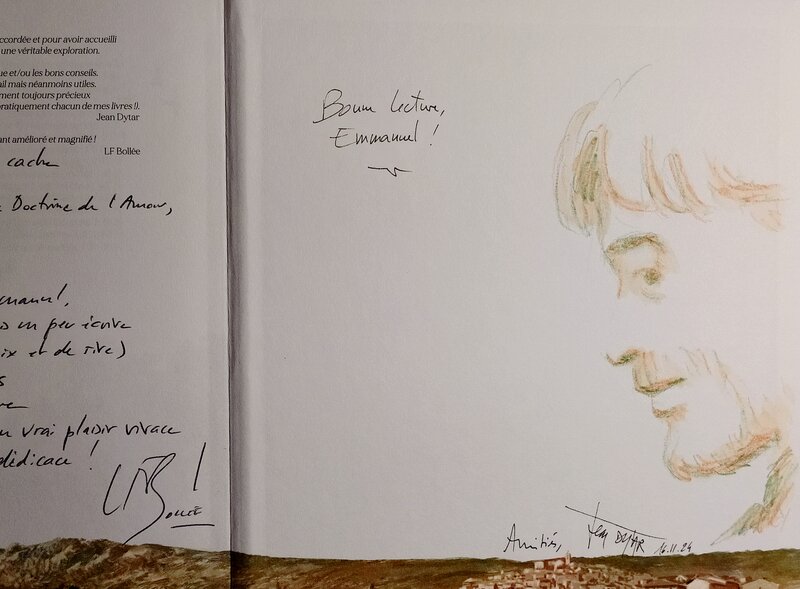 ccordée et pour avoir accueilli
une véritable exploration.
ue et/ou les bons conseils.
ail mais néanmoins utiles.
ment toujours précieux
pratiquement chacun de mes livres !).
Jean Dytar
ant amélioré et magnifié !
LF Bollée
cache
Doctrine de l'Amour,
manuel,
un peu écrire
ix et de rire)
n vrai plaisir vivace
dédicace !
LF Bollée
Bonne lecture,
Emmanuel !
Amitiés,
Jean DYTAR
16.11.24